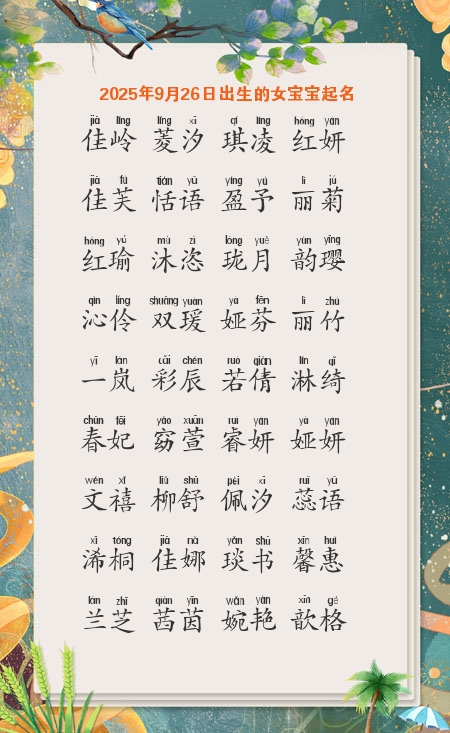 2025年9月26日出生的女宝宝起名
jiā líng líng xī qí líng hóng yán
佳岭 菱汐 琪凌 红妍
jiā fú tián yǔ yíng yú lì jú
佳芙 恬语 盈予 丽菊
hóng yú mù zì lóng yuè yùn yīng
红瑜 沐恣 珑月 韵璎
qìn líng shuāng yuàn yà fēn lì zhú
沁伶 双瑗 娅芬 丽竹
yī lán cǎi chén ruò qiàn lín qǐ
一岚 彩辰 若倩 淋绮
chūn fēi yǎo xuān ruì yán yà yán
春妃 窈萱 睿妍 娅妍
wén xǐ liǔ shū pèi xī ruǐ yǔ
文禧 柳舒 佩汐 蕊语
xī tóng jiā nà yǎn shū xīn huì
浠桐 佳娜 琰书 馨惠
lán zhī qiàn yīn wǎn yàn xīn gé
兰芝 茜茵 婉艳 歆格